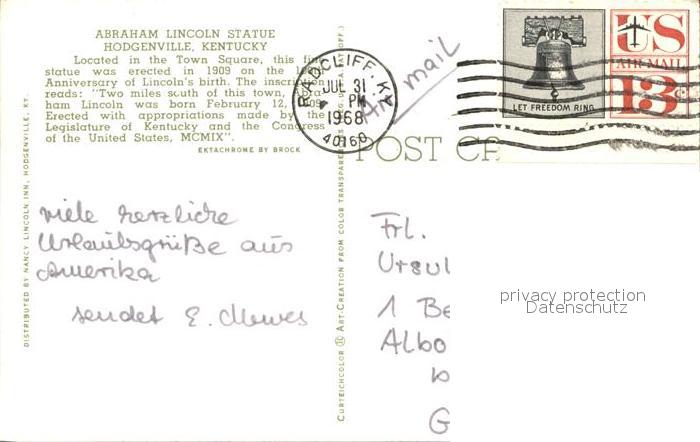 ABRAHAM LINCOLN STATUE
HODGENVILLE, KENTUCKY
Located in the Town Square, this fine
statue was erected in 1909 on the 100th
Anniversary of Lincoln's birth. The inscription
reads: "Two miles south of this town, Abra-
ham Lincoln was born February 12, 1809.
Erected with appropriations made by the
Legislature of Kentucky and the Congress
of the United States, MCMIX".
EKTACHROME BY BROCK
DISTRIBUTED BY NANCY LINCOLN INN, HODGENVILLE, KY.
CURTEICHCOLOR ® ART-CREATION FROM COLOR TRANSPARE
RADCLIFF, KY.
JUL 31
PM
1968
40160
Air mail
LET FREEDOM RING
US
AIR MAIL
13c
POST CA
viele herzliche
Urlaubsgrüße aus
Amerika
sendet E. Mewes
Frl.
Ursul
1 Be
Albo
G
privacy protection
Datenschutz